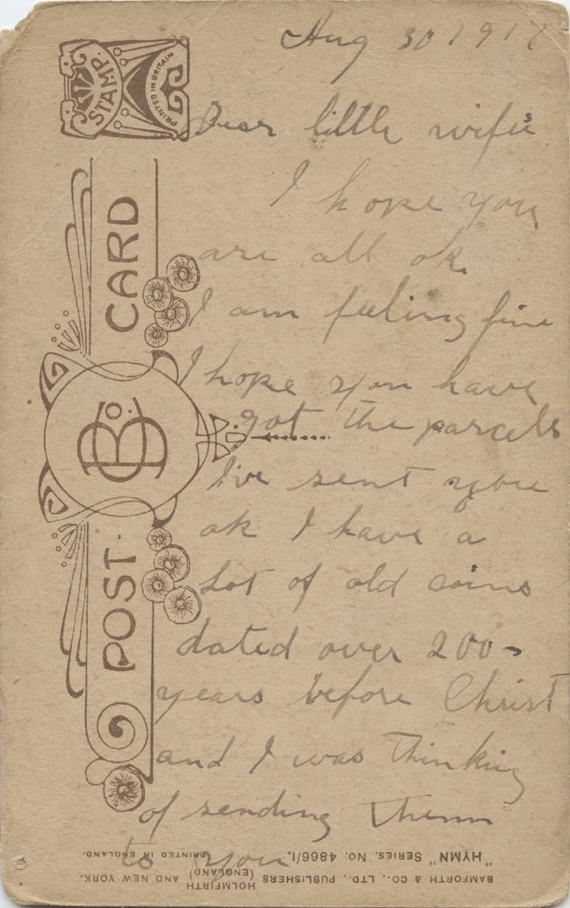 Aug 30 1917
Dear little wifie
I hope you
are all ok.
I am feeling fine
I hope you have
got the parcels
Ive sent you
ok I have a
Lot of old coins
dated over 200
years before Christ
and I was thinking
of sending them
to you
STAMP.
PRINTED IN BRITAIN
POST CARD
B Co.
"HYMN" SERIES. NO. 4866/1.
PRINTED IN ENGLAND.
BAMFORTH & CO., LTD., PUBLISHERS HOLMFIRTH (ENGLAND) AND NEW YORK.